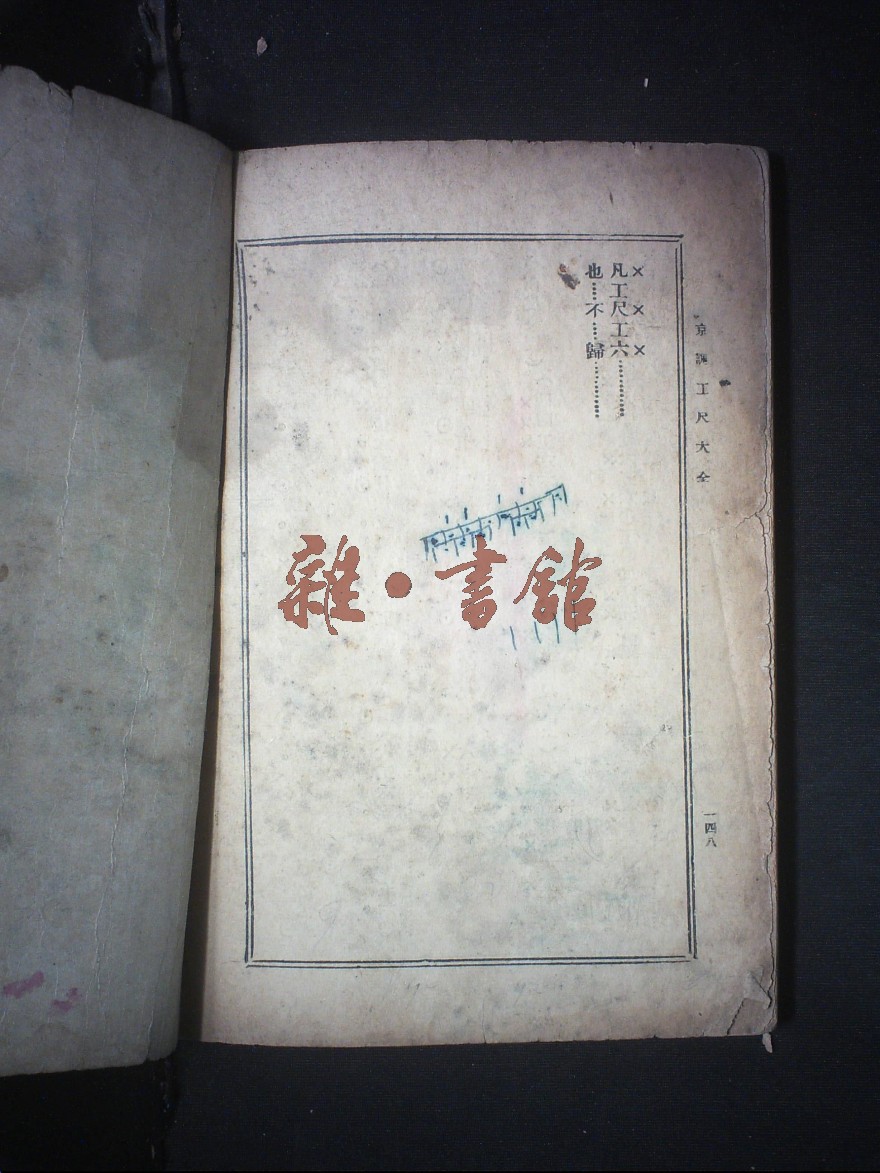 京調工尺大全
× × ×
凡工尺工六…………
也……不……歸…………
雜·書館
一四八